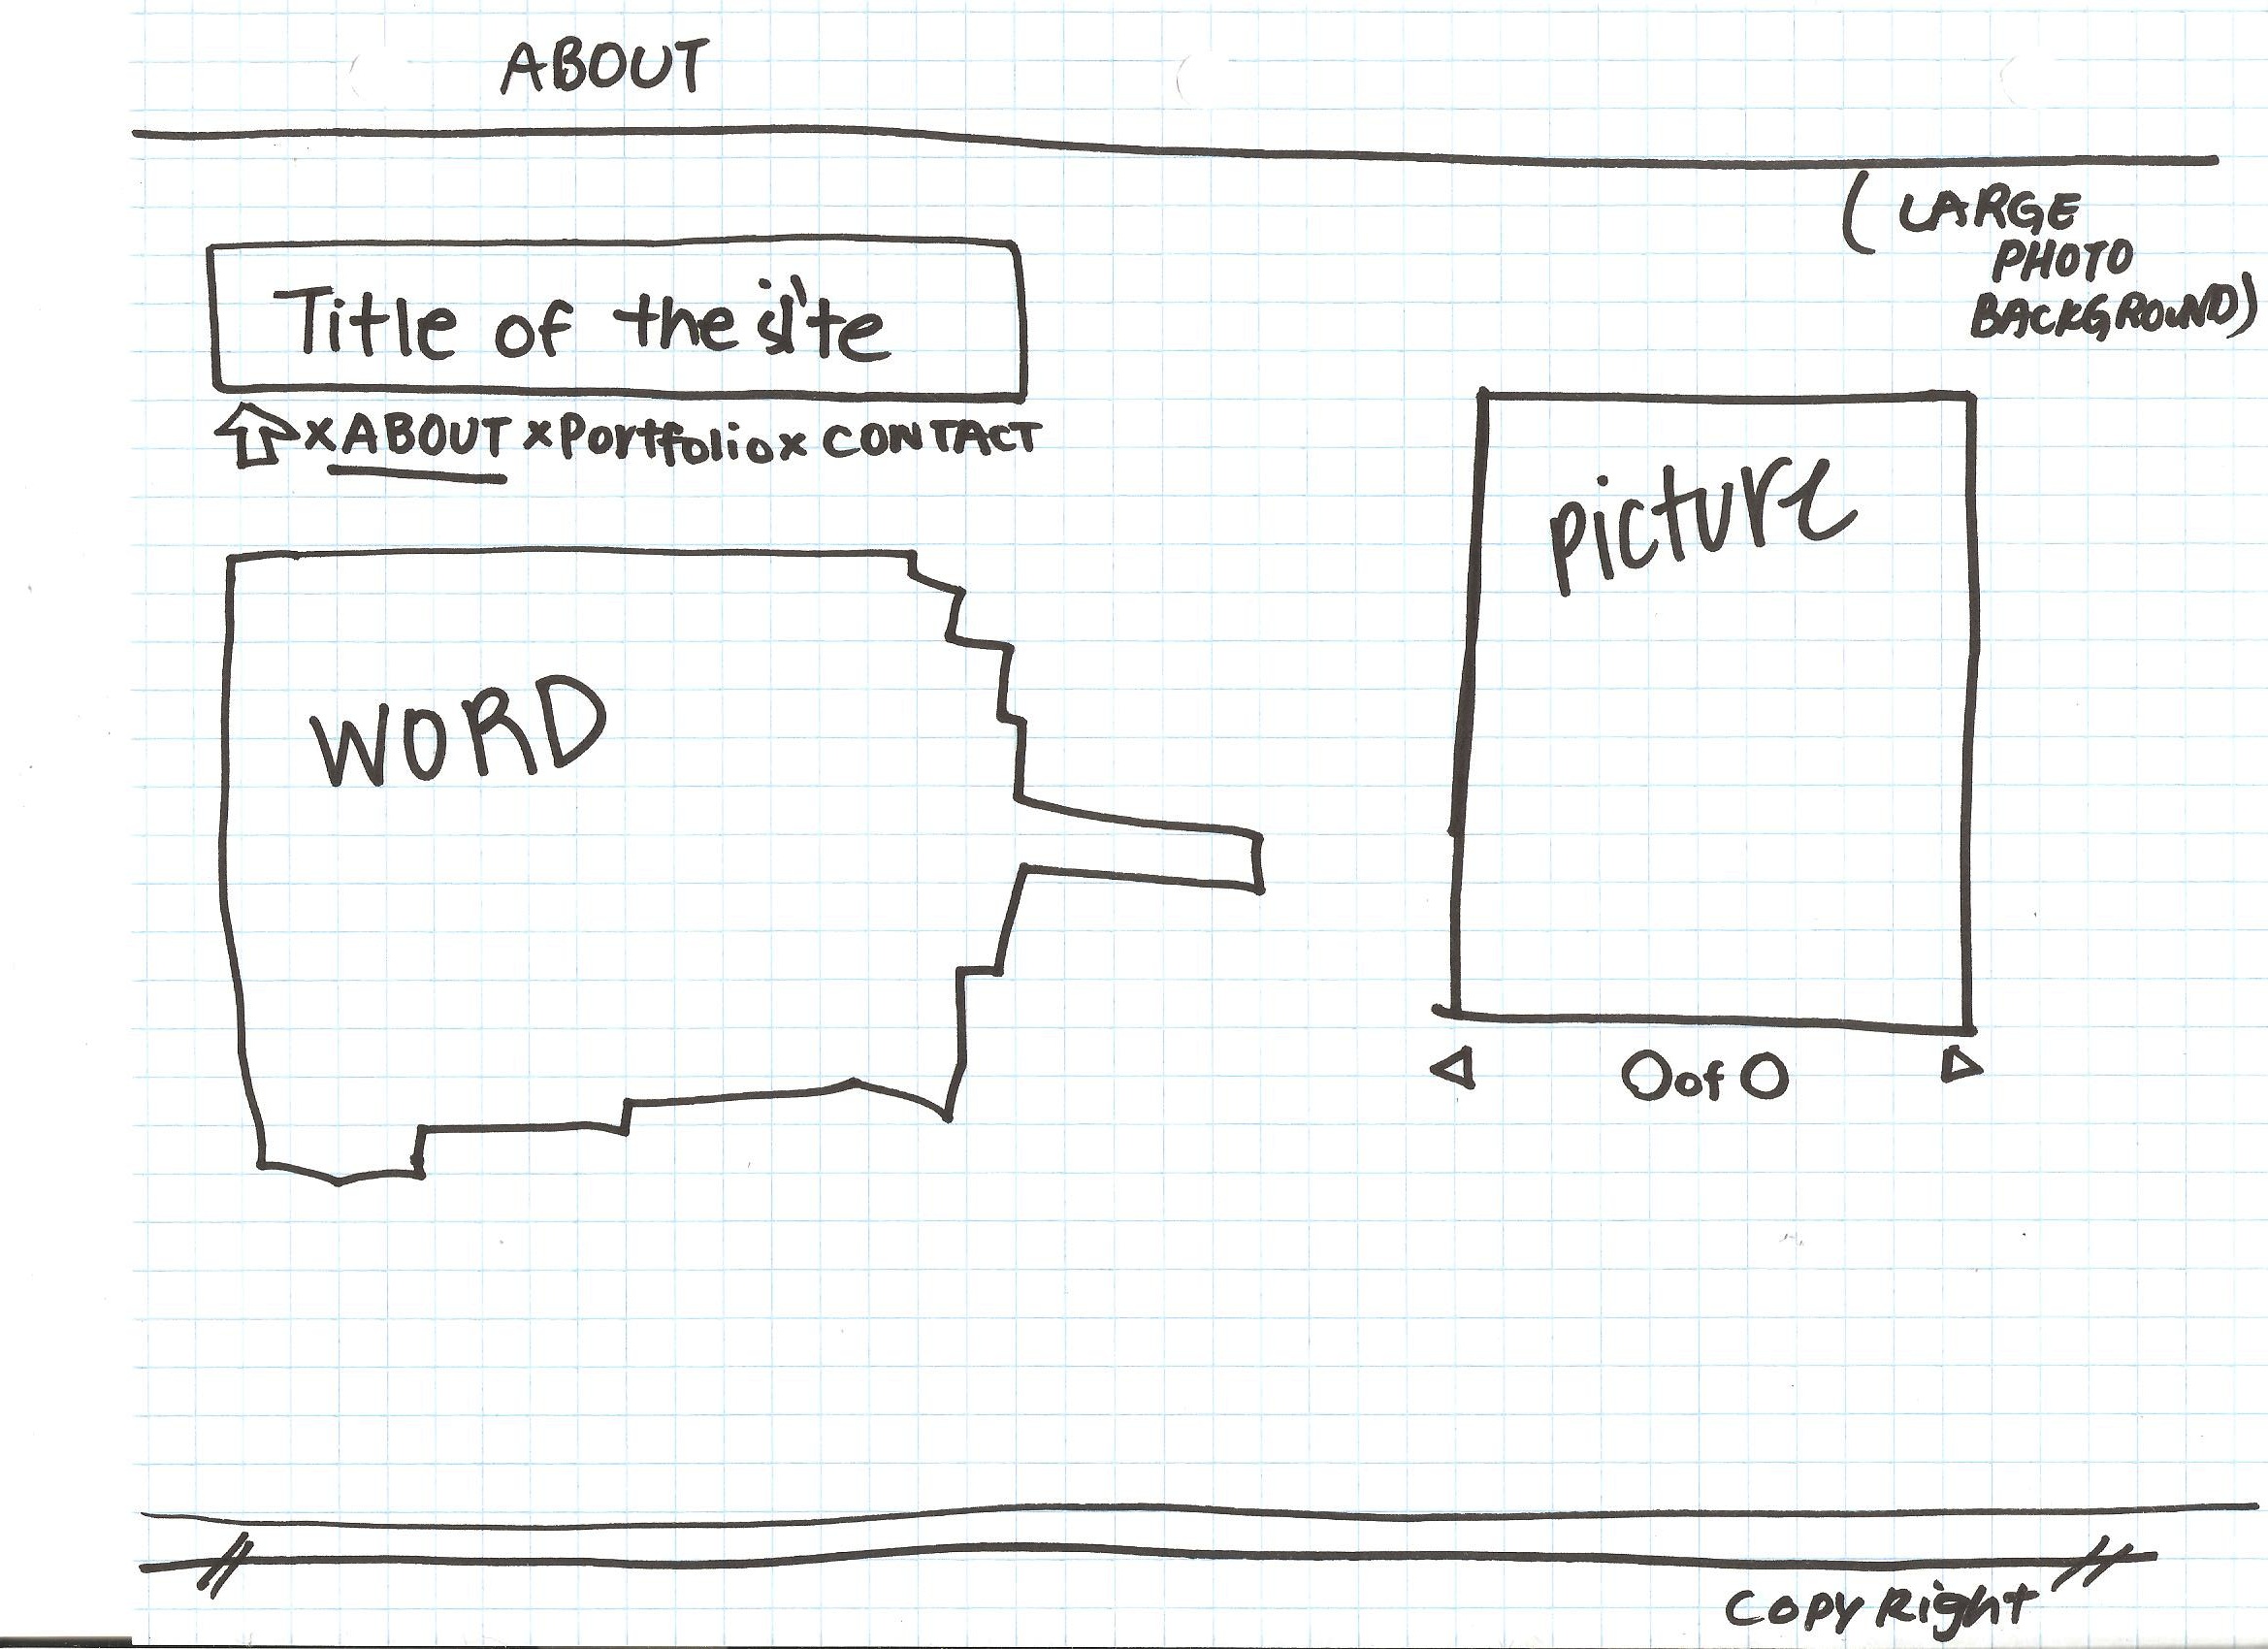 ABOUT
(LARGE
PHOTO
BACKGROUND)
Title of the site
x ABOUT x Portfolio x CONTACT
picture
WORD
0 of 0
Copy Right